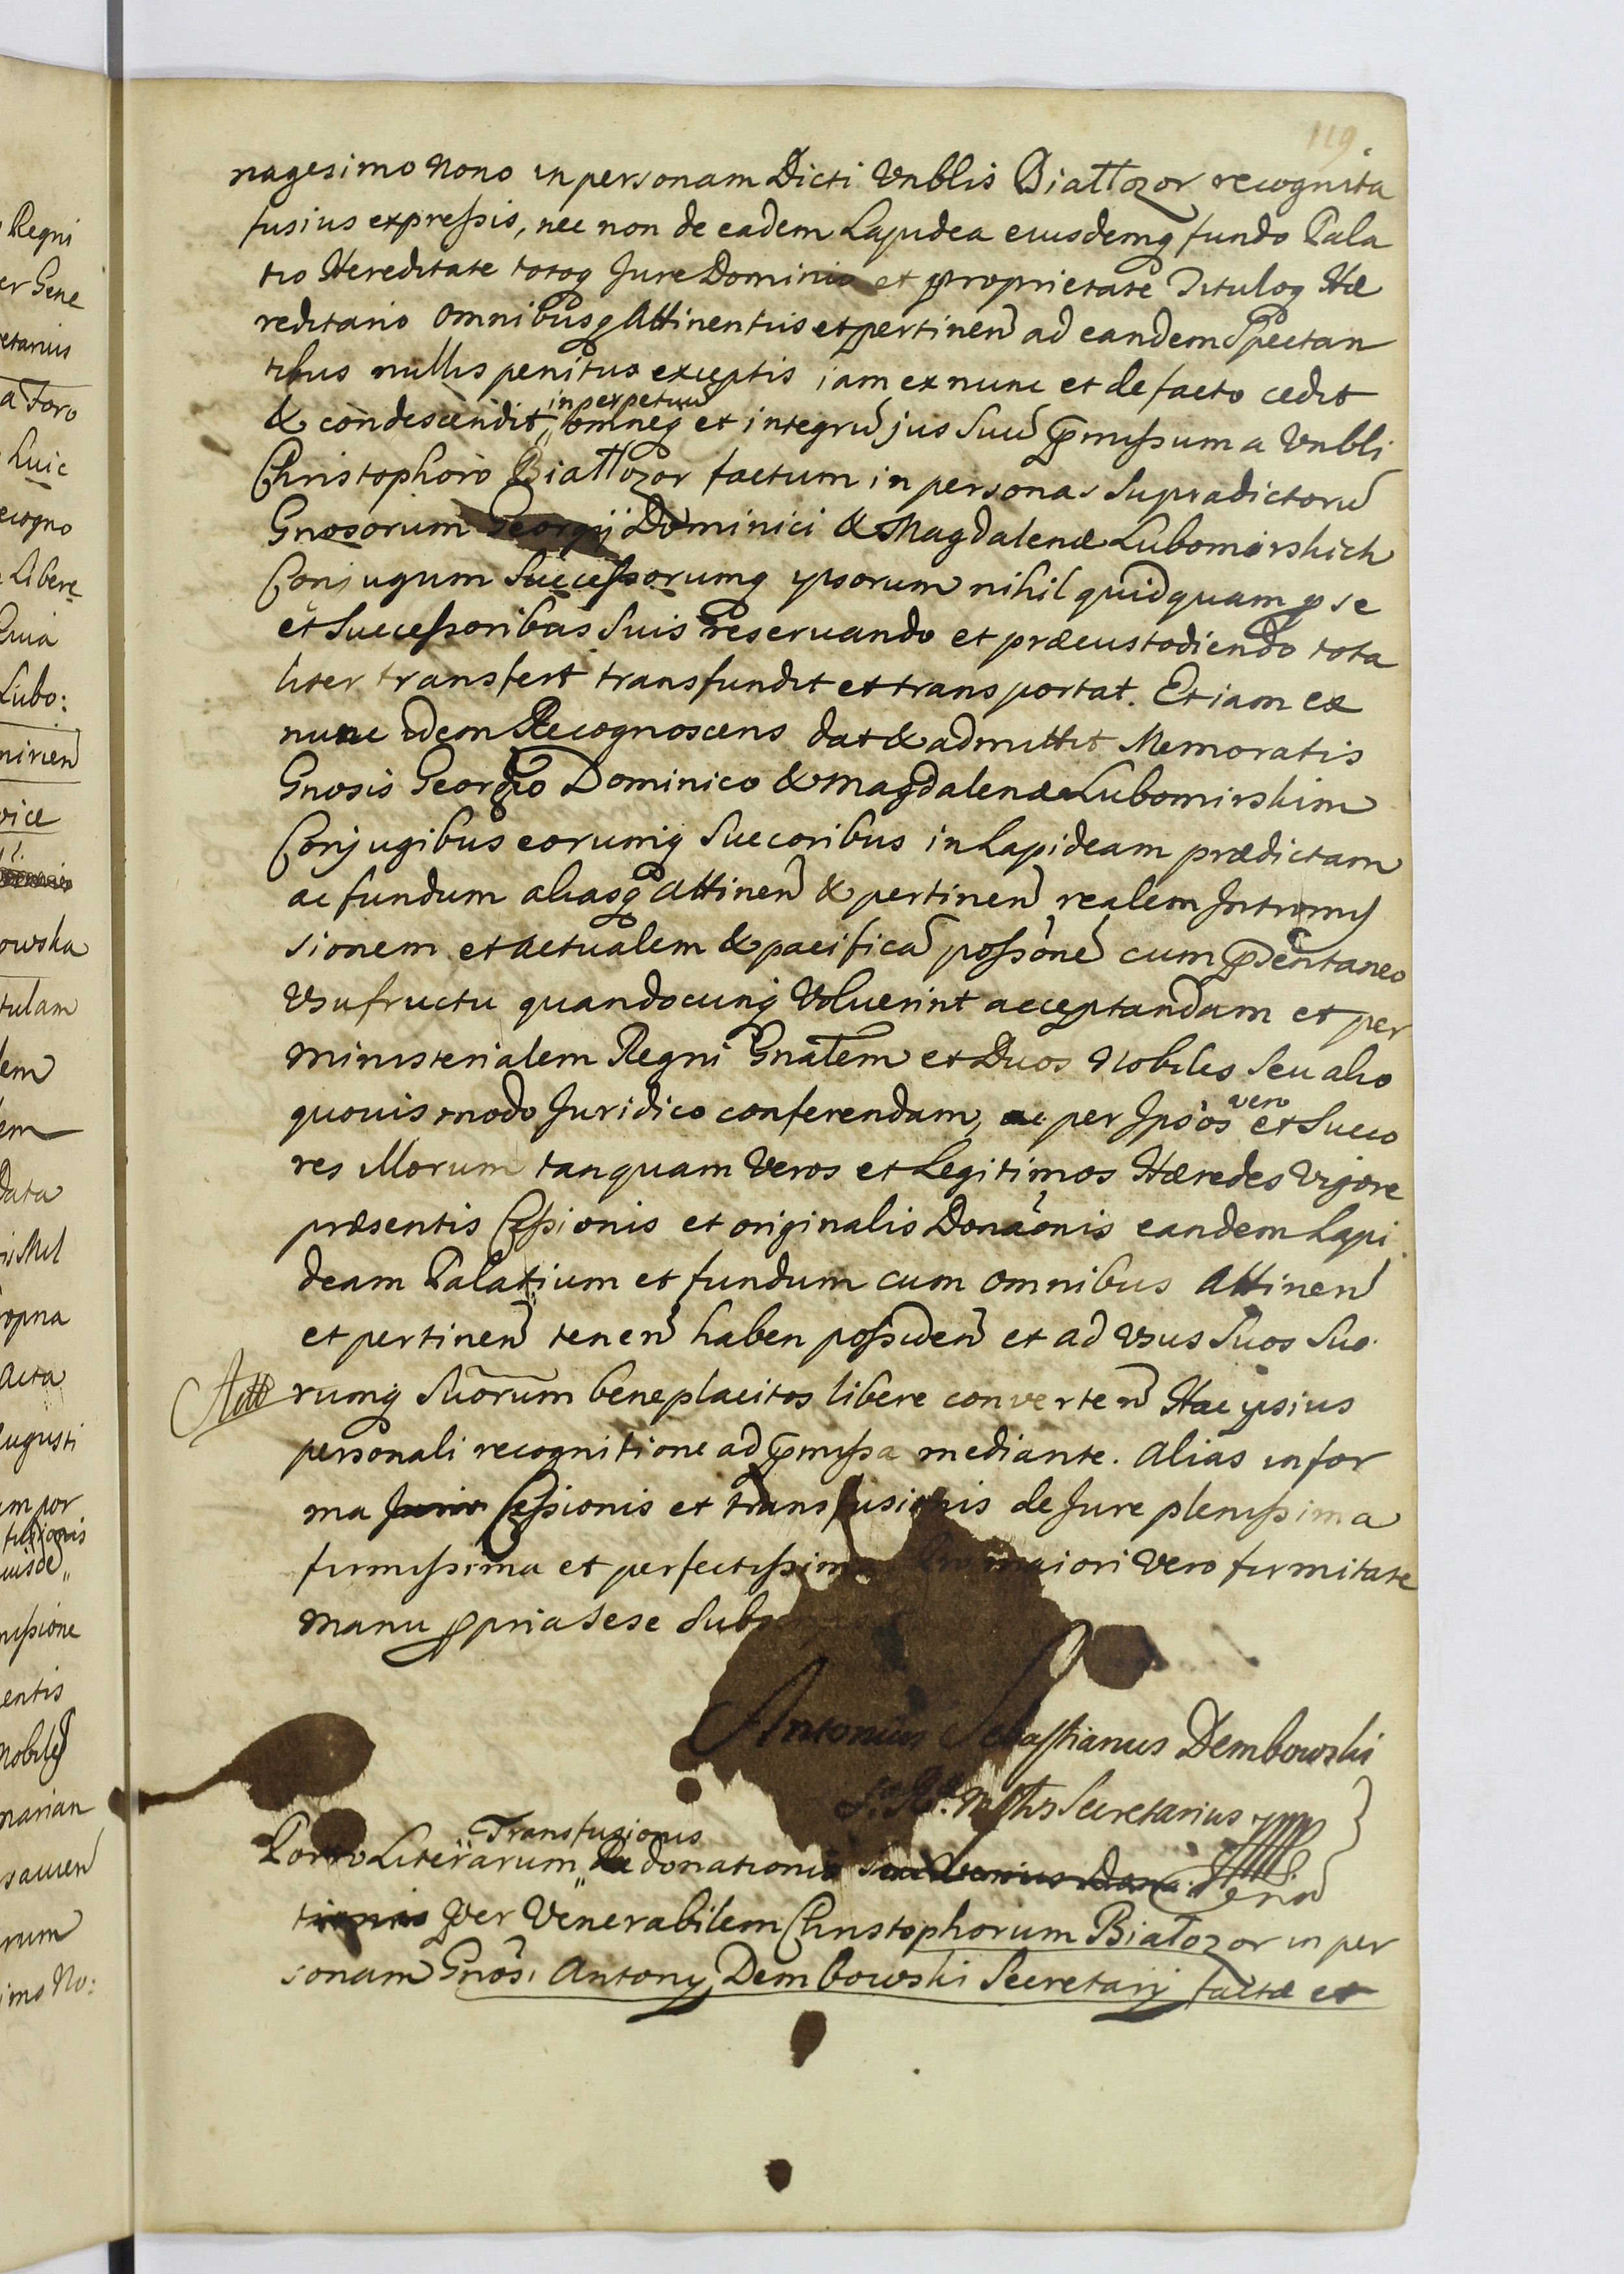 119.
nagesimo Nono in personam Dicti Vnblis Białłozor recognita
fusius expressis, nec non de eadem Lapidea eiusdemq fundo Pala
tio Hereditate totoq Jure Dominio et proprietate Tituloq Hæ
reditario Omnibusq Attinentiis et pertinen ad eandem Spectan
tibus nullis penitus exceptis iam ex nunc et de facto cedit
& condescendit, in perpetuũ omneq et integrũ jus suũ p̃missum a Vnbli
Christophoro Białłozor factum in personas supradictorũ
Gnosorum Georgij Dominici & Magdalenæ Lubomirskich
Conjugum Successorumq ipsorum nihil quidquam p se
et Successoribus Suis reservando et præcustodiendo tota
liter transfert transfundit et transportat. Et iam ex
nunc idem Recognoscens dat & admittit Memoratis
Gnosis Georgio Dominico & Magdalenæ Lubomirskim
Conjugibus eorumq Succoribus in Lapideam prædictam
ac fundum aliasq attinen & pertinen realem Intromis
sionem et actualem & pacificã possõnẽ cum p̃dentaneo
Vsufructu quandocunq Voluerint acceptandam et per
Ministerialem Regni Gnalem et Duos Nobiles seu alio
quovis modo Juridico conferendam, ac per Ipsos vero et Succo
res Illorum tanquam Veros et Legitimos Hæredes Vigore
præsentis Cessionis et originalis Donaõnis eandem Lapi
deam Palatium et fundum cum omnibus Attinen
et pertinen tenen haben possiden et ad Vsus Suos Suo
rumq Suõrum beneplacitos libere converten Hac ipsius
personali recognitione ad p̃missa mediante. Alias in for
ma Juris Cessionis et transfusionis de Jure plenissima
firmissima et perfectissima maiori Vero firmitate
manu ppria sese Subs
Antonius Sebastianus Dembowski
S. R. Mttis Secretarius
Porro Literarum Transfusionis donationis
tionis Per Venerabilem Christophorum Białozor in per
sonam Gnosi Antony Dembowski Secretarij factæ et